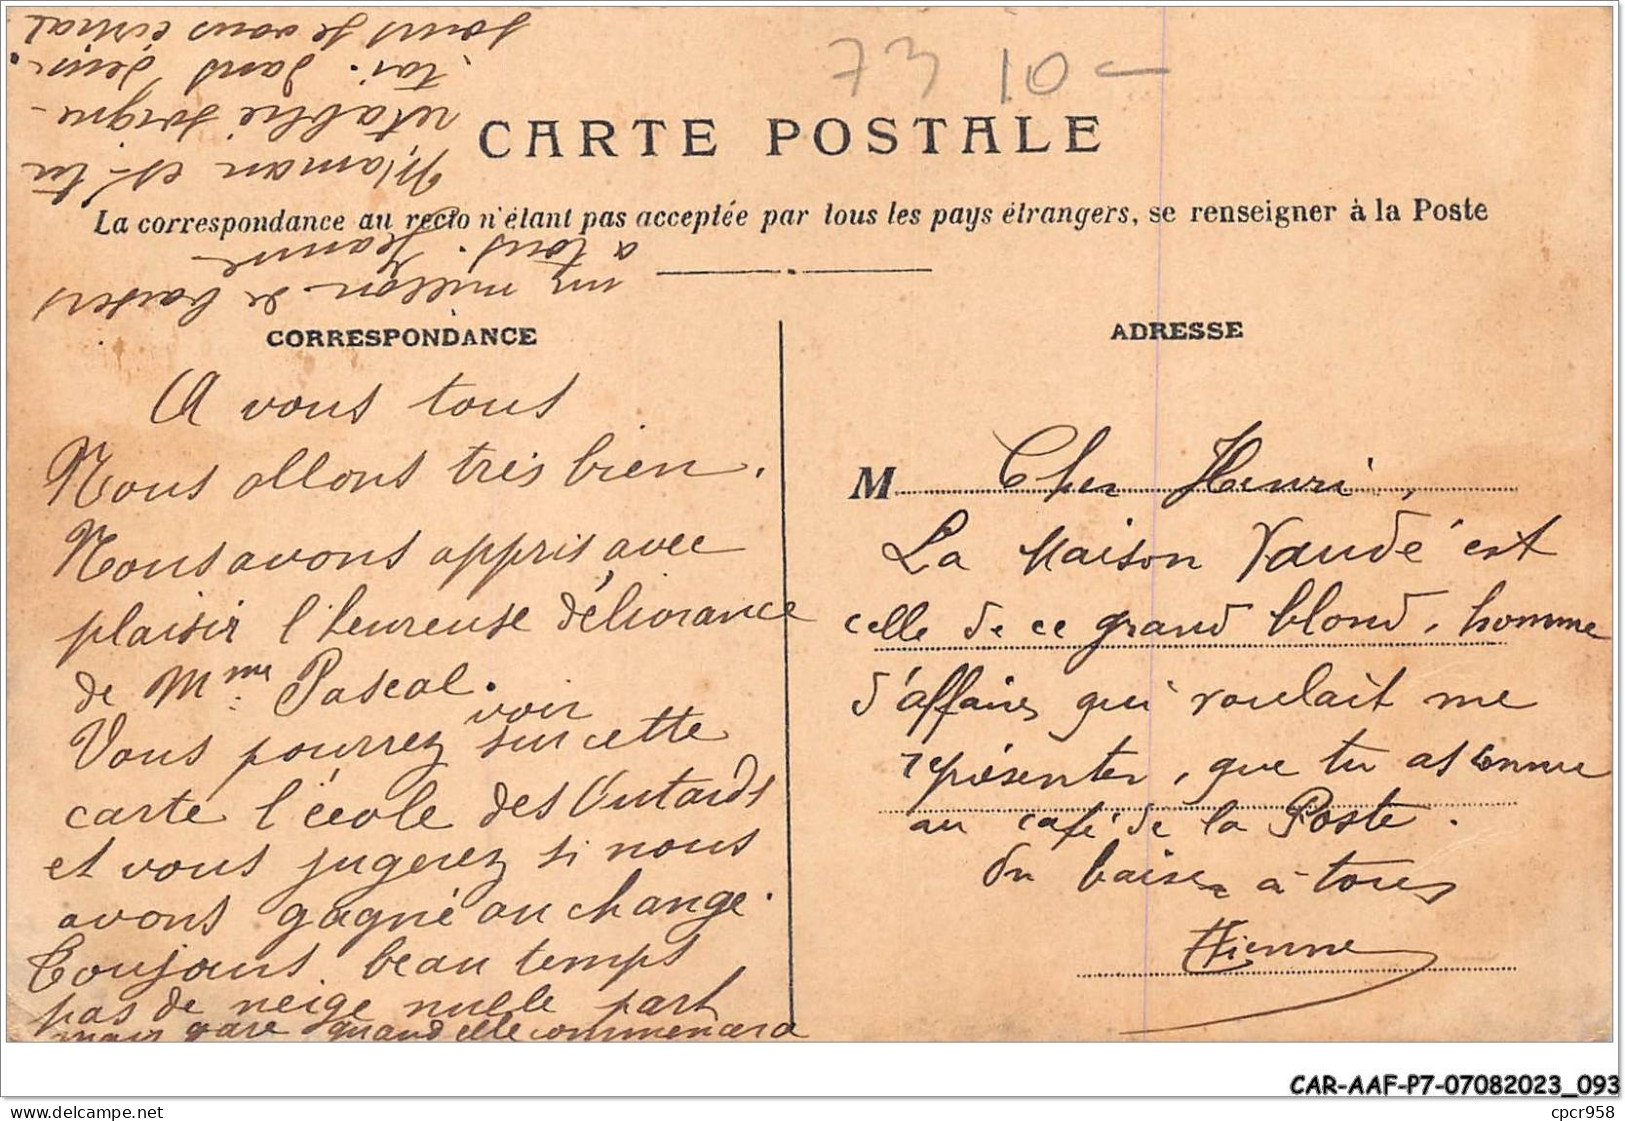 73 10 -
CARTE POSTALE
La correspondance au recto n'étant pas acceptée par tous les pays étrangers, se renseigner à la Poste
CORRESPONDANCE
A vous tous
Nous allons très bien.
Nous avons appris avec
plaisir l'heureuse délivrance
de Mme Pascal.
Vous pourrez voir sur cette
carte l'école des
et vous jugerez si nous
avons gagné au change.
Toujours beau temps
pas de neige nulle part
mais gare quand elle commencera
un million de baisers
à tous. Jeanne
Maman es-tu
rétablie soigne-
toi. dans deux
jours je vous écrirai
ADRESSE
M Cher Henri,
La Maison Vaudé est
celle de ce grand blond, homme
d'affaires qui voulait me
représenter, que tu as connu
au café de la Poste.
Un baiser à tous
Etienne
CAR-AAF-P7-07082023_093
delcampe.net
cpcr958